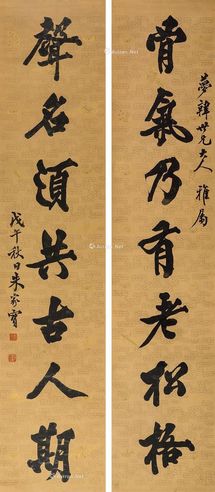 夢韓世兄大人雅屬
骨氣乃有老松格
聲名須共古人期
戊午秋日朱家寶